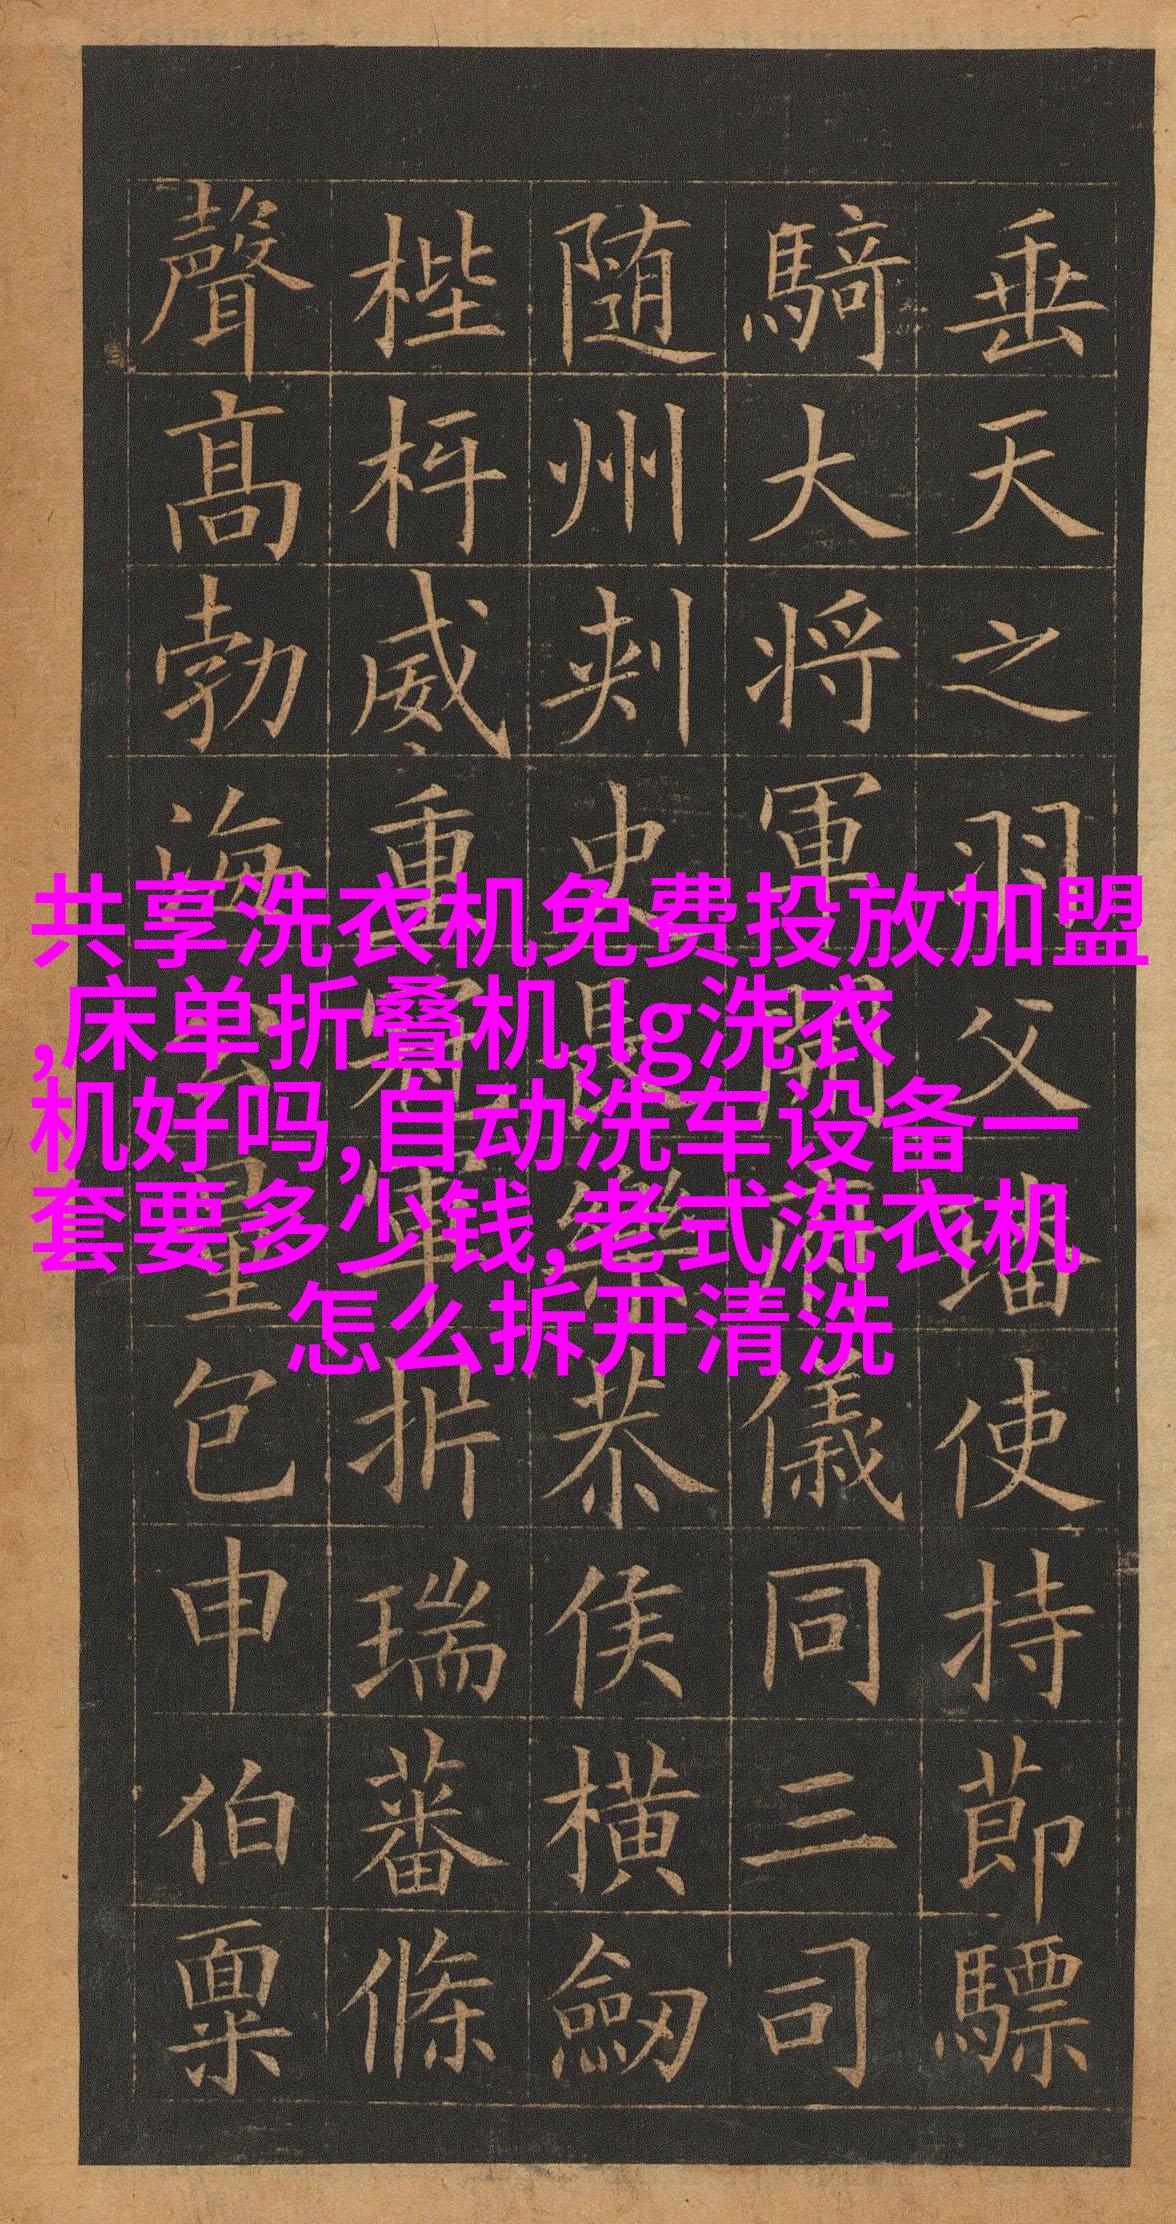 垂天之羽父璠使持節驃
騎大将軍開府儀同三司
随州刾史長樂恭侯横劒
梐枑威重冠軍扸瑞蕃條
聲高勃海公量包申伯稟
共享洗衣机免费投放加盟
,床单折叠机,lg洗衣
机好吗,自动洗车设备一
套要多少钱,老式洗衣机
怎么拆开清洗